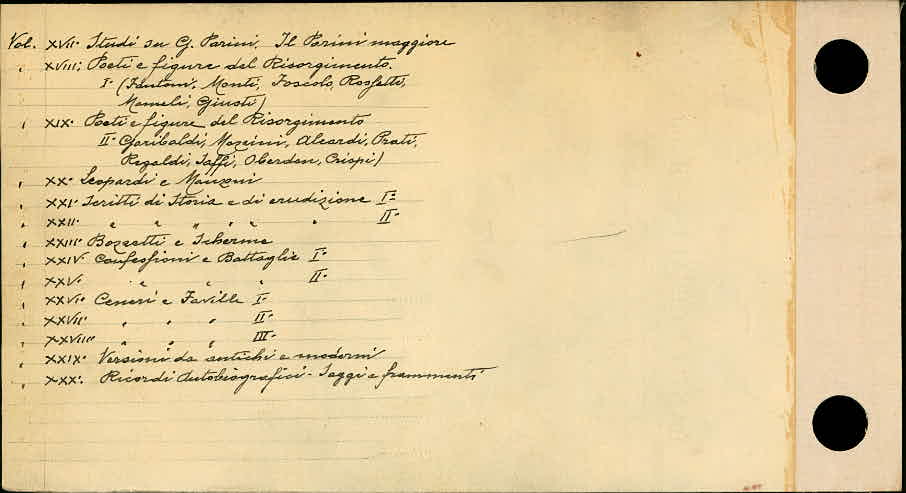 Vol. XVII° Studi su G. Parini, Il Parini maggiore
" XVIII° Poeti e figure del Risorgimento.
I° (Fantoni, Monti, Foscolo, Rossetti,
Mameli, Giusti)
" XIX° Poeti e figure del Risorgimento
II° Garibaldi, Mazzini, Aleardi, Prati,
Regaldi, Saffi, Oberdan, Crispi)
" XX° Leopardi e Manzoni
" XXI° Scritti di Storia e di erudizione I°
" XXII° " " " " " " II°
" XXIII° Bozzetti e Scherme
" XXIV° Confessioni e Battaglie I°
" XXV° " " " II°
" XXVI° Ceneri e Faville I°
" XXVII° " " " II°
" XXVIII° " " " III°
" XXIX° Versioni da antichi e moderni
" XXX° Ricordi Autobiografici - Saggi e frammenti